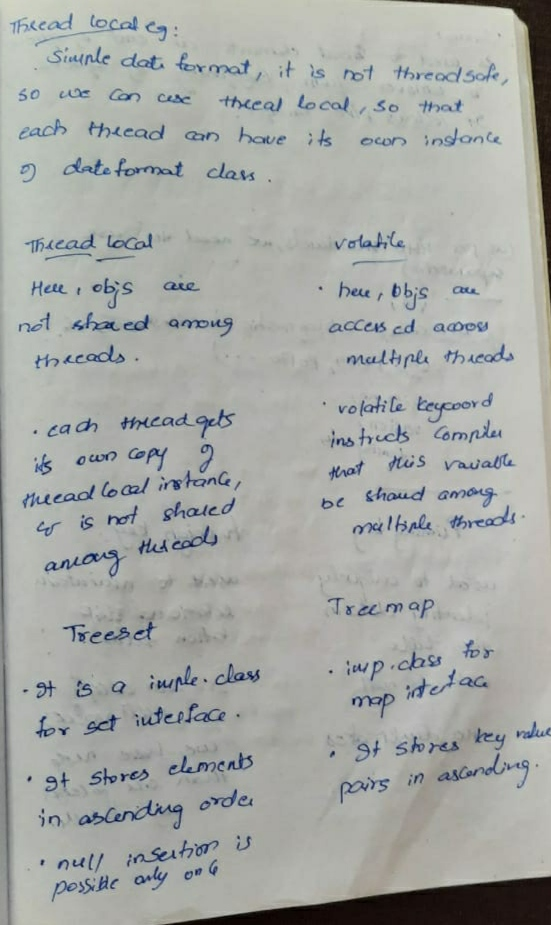 Thread local eg:
Simple date format, it is not threadsafe,
so we can use threal local, so that
each thread can have its own instance
of dateformat class.
Thread local
Here, objs are
not shared among
threads.
• each thread gets
its own copy of
thread local instance,
& is not shared
among threads
volatile
• here, objs are
accessed across
multiple threads
• volatile keyword
instructs compiler
that this variable
be shared among
multiple threads.
Treeset
• It is a imple. class
for set interface.
• It stores elements
in ascending order
• null insertion is
possible only on
Treemap
• imp. class for
map interface
• It stores key value
pairs in ascending.